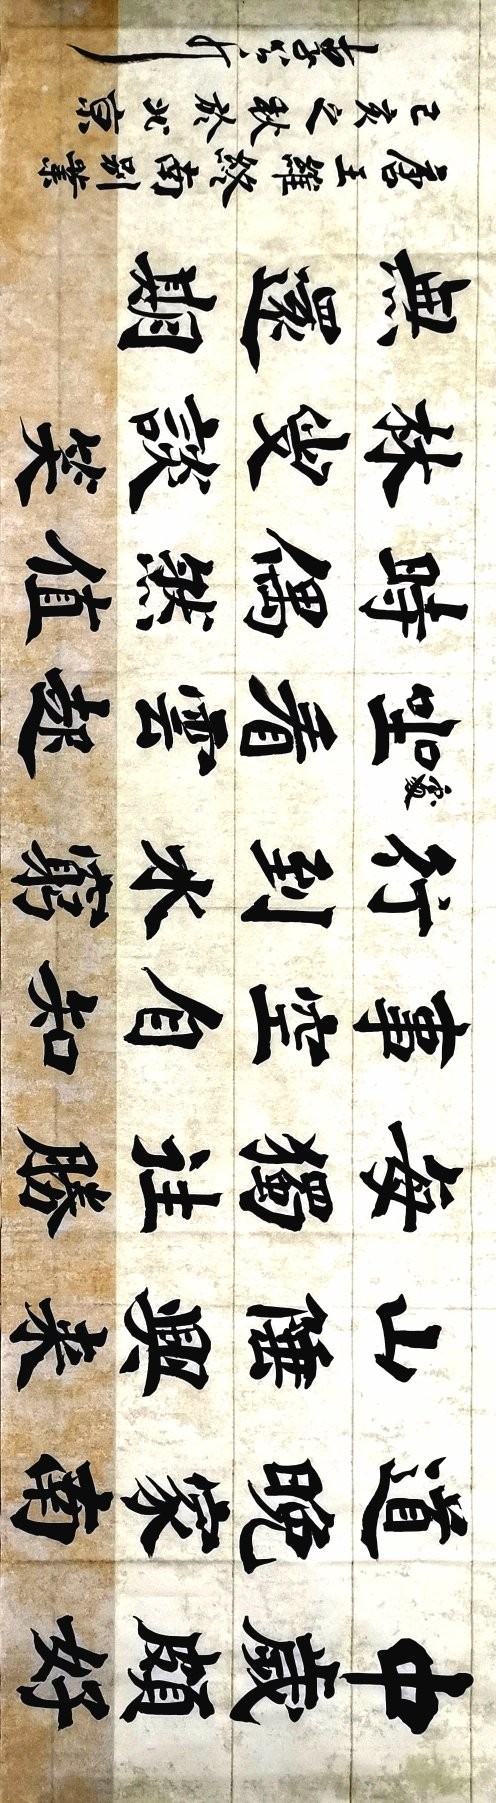 中歲頗好
道晚家南
山陲興來
每獨往勝
事空自知
行到水窮
處
坐看雲起
時偶然值
林叟談笑
無還期
唐王維終南別業
己亥之秋於北京